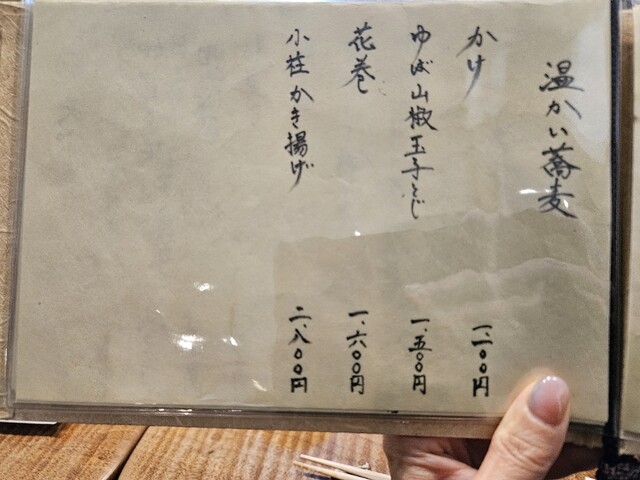 温かい蕎麦
かけ 一、二〇〇円
ゆば山椒玉子とじ 一、五〇〇円
花巻 一、六〇〇円
小柱かき揚げ 二、八〇〇円